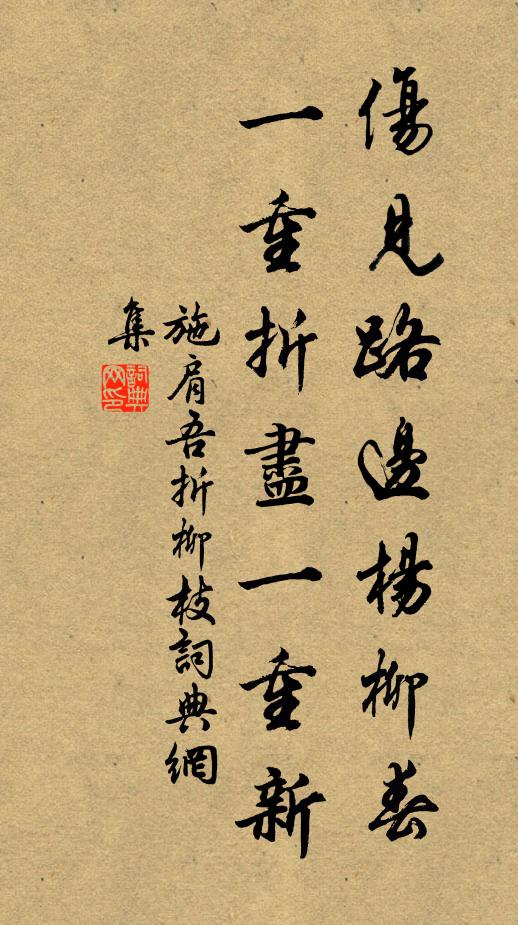 傷見路邊楊柳春
一重折盡一重新
施肩吾折柳枝詞典網
集
詞典網印